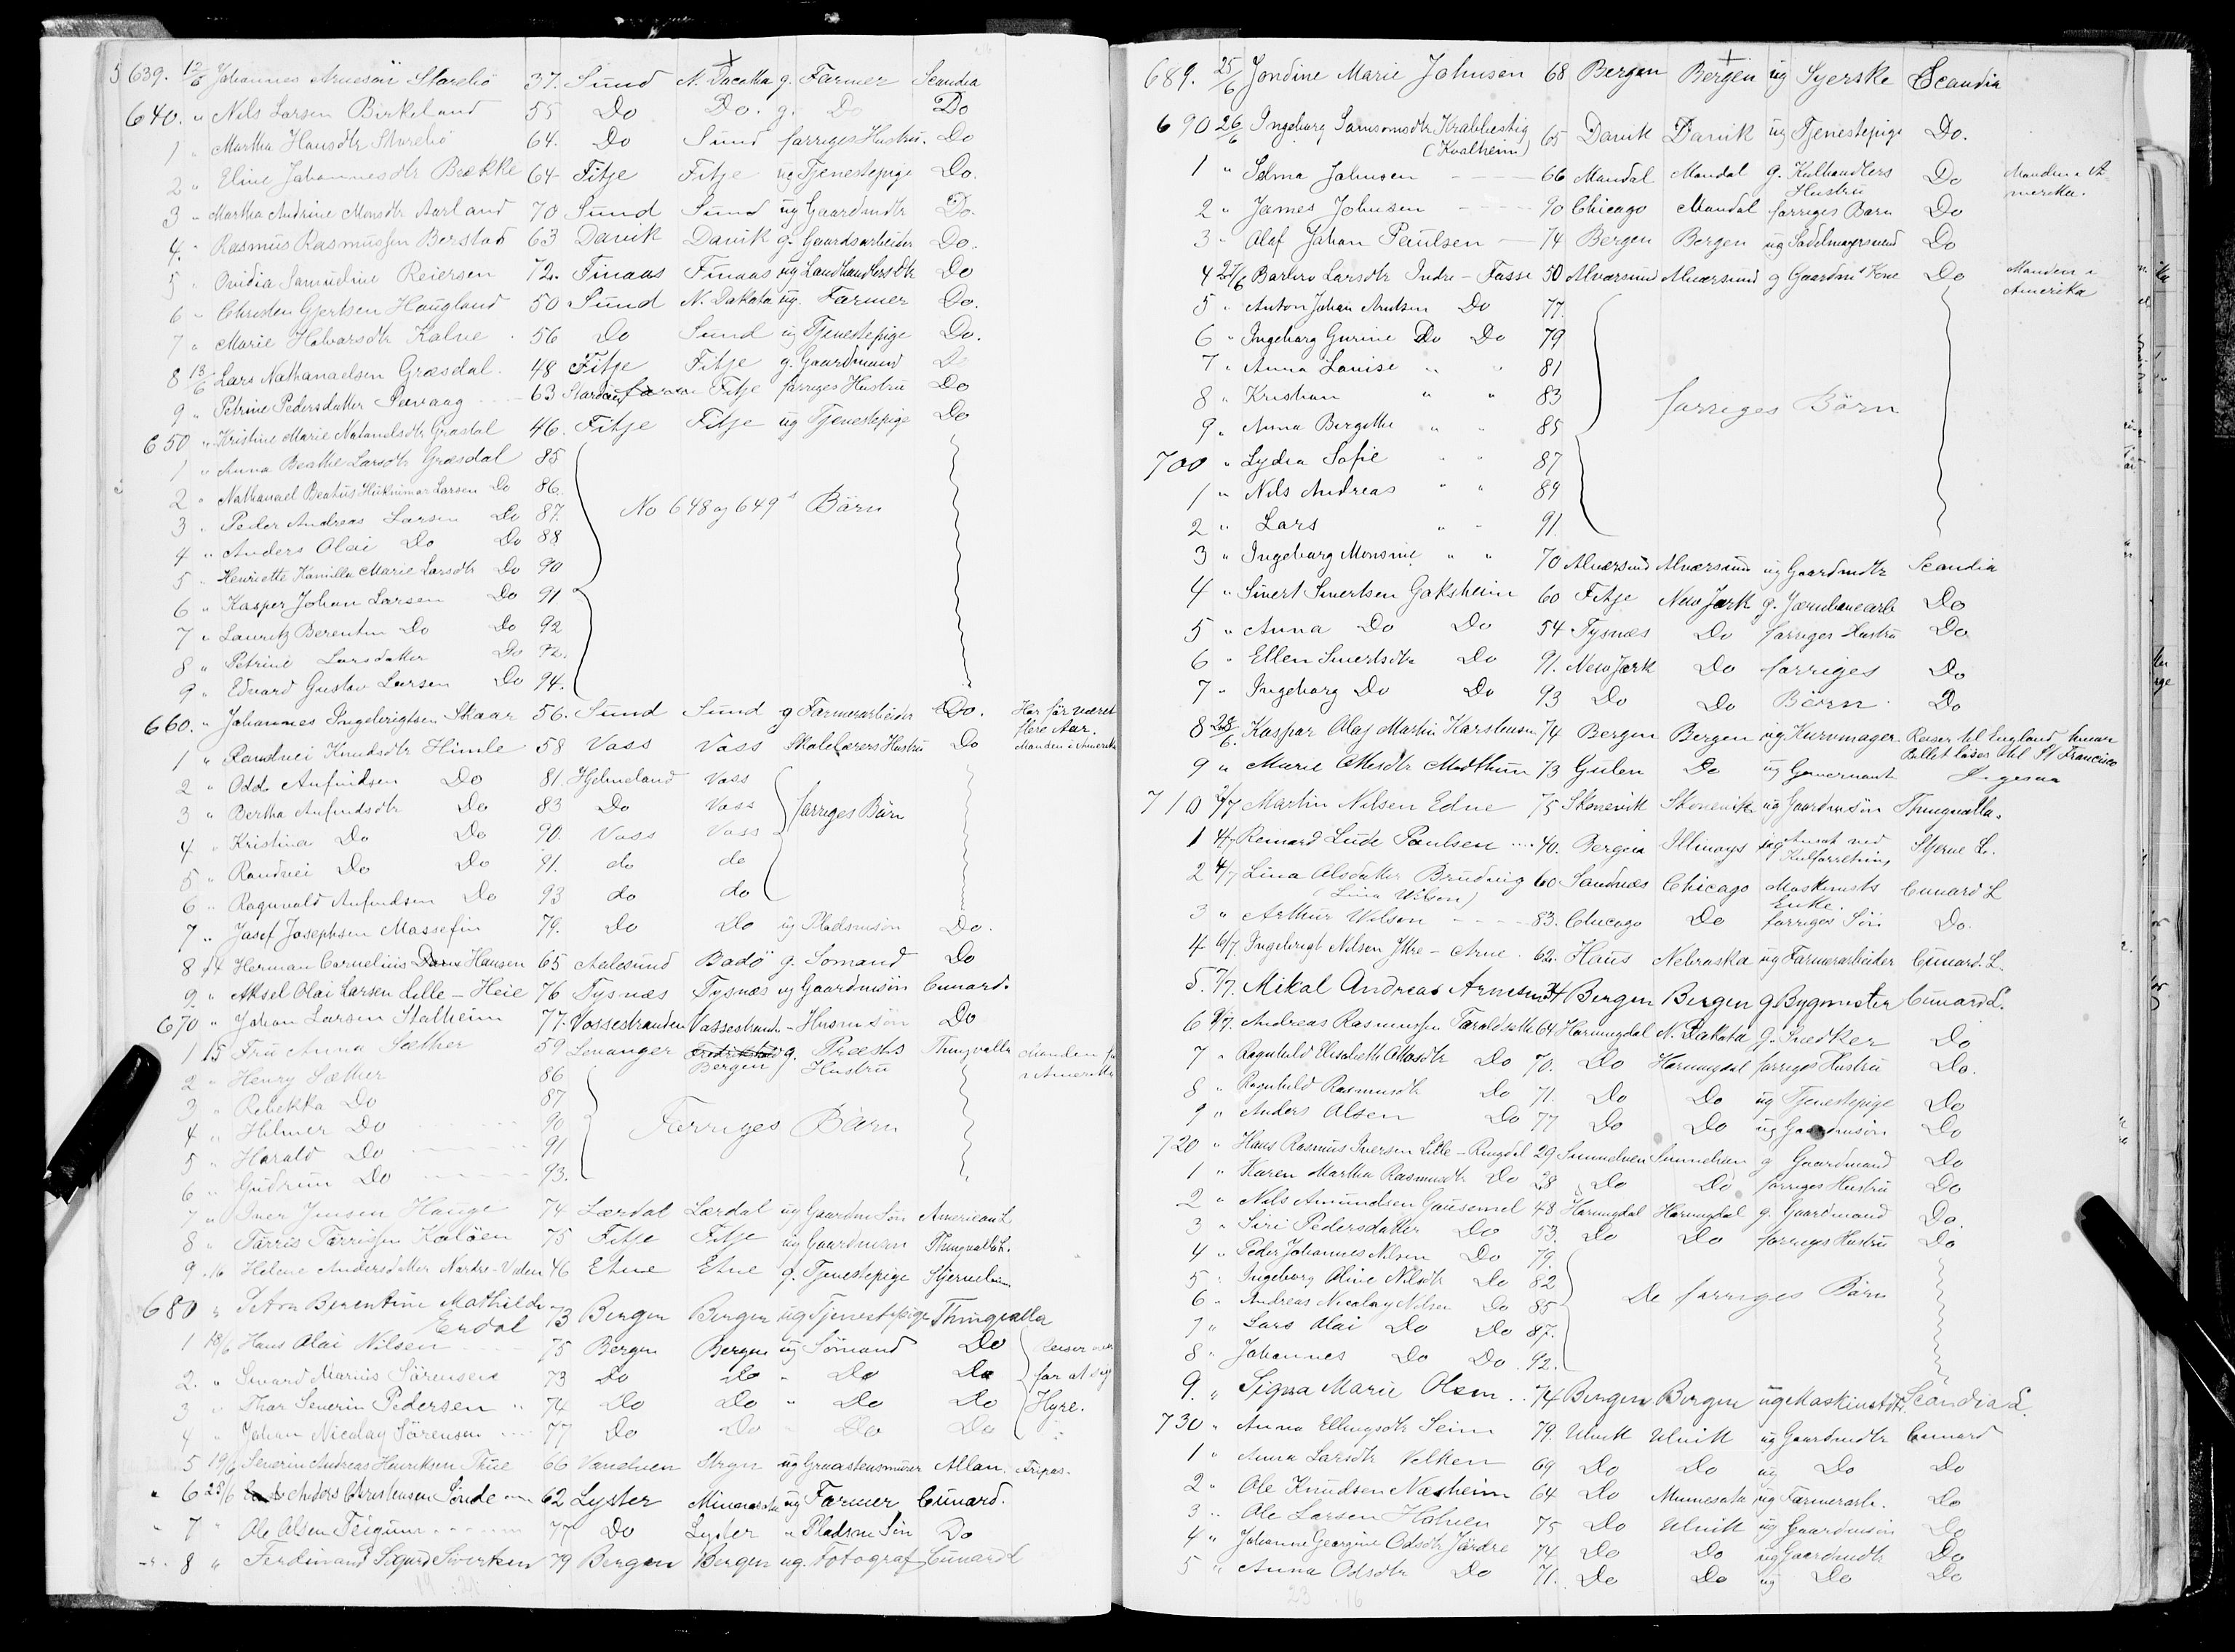 639. 12/6 Johannes Arnesön Storebö 37. Sund N. Dacotta g. Farmer Scandia
640. " Nils Larsen Birkeland 55 Do Do. g. Do Do
1 " Martha Hansdtr Storebö 64. Do Sund forriges Hustru. Do
2 " Eline Johannesdtr Brække 64 Fitje Fitje ug Tjenestepige Do.
3 " Martha Andrine Monsdtr Aarland 70 Sund Sund ug Gaardmdtr Do.
4. " Rasmus Rasmussen Berstad 63 Davik Davik g. Gaardsarbeider Do.
5 " Ovidia Samueline Reiersen 72. Finaas Finaas ug Landhandlersdtr Do
6 " Christen Gjertsen Haugland 50 Sund N. Dakota ug. Farmer Do.
7 " Marie Halvarsdtr Kalve 56 Do Sund ug Tjenestepige Do.
8 13/6 Lars Nathanaelsen Græsdal. 48 Fitje Fitje g. Gaardmand Do
9 " Petrine Pedersdatter Sævaag 63 Fitje forriges Hustru Do
650 " Kristine Marie Natanelsdtr Græsdal 46. Fitje Fitje ug Tjenestepige Do
1 " Anna Beathe Larsdtr Græsdal 85
2 " Nathanael Beatus Larsen Do 86.
3 " Peder Andreas Larsen Do 87. No 648 og 649s Börn
4 " Anders Olai Do Do 88
5 " Henriette Kamilla Marie Larsdtr Do 90
6 " Kasper Johan Larsen Do 91
7 " Lauritz Berentin Do Do 92
8 " Petrine Larsdatter Do 92.
9 " Edvard Gustav Larsen Do 94.
660. " Johannes Ingebrigtsen Skaar 56. Sund Sund g Farmerarbeider Do. Har för været flere Aar.
1 " Randvei Knudsdtr Himle 58 Voss Voss Skolelærers Hustru Do Manden i Amerika
2 " Odd Anfindsen Do 81. Hjelmeland Voss
3 " Bertha Anfindsdtr Do 83 Do Voss forriges Börn
4 " Kristina Do Do 90. Voss Voss
5 " Randvei Do Do 91. do do
6 " Ragnvald Anfindsen Do 93 do do
7 " Josef Josephsen Massefin 79. Do Do ug Pladsmsön Do.
8 14 Herman Cornelius Hansen 65 Aalesund Bodö g. Sömand Do
9. " Aksel Olai Larsen Lille-Heie 76 Tysnæs Tysnæs ug Gaardmsön Cunard.
670 " Johan Larsen Stalheim 77. Vossestranden Vossestranden - Husmsön Do
1 15 Fru Anna Sæther 59 Levanger Fredrikstad Bergen g. Præsts Hustru Thingvalla Manden i Amerika
2 " Henry Sæther 86
3 " Rebekka Do 87
4 " Hilmer Do 90 Forriges Börn
5 " Harald Do 91
6 " Gudrun Do 93.
7 " Iver Jensen Hauge 74 Lærdal Lærdal ug Gaardm Sön American L
8 " Tarris Tarrisen Kalöen 75 Fitje Fitje ug Gaardmsön Thingvalla L.
9. 16 Helene Andersdatter Nordre-Valen 46 Etne Etne g. Tjenestepige Stjernelin
680 " Berentine Mathilde Erdal 73 Bergen Bergen ug Tjenestepige Thingvalla
1 18/6 Hans Olai Nilsen 75 Bergen Bergen ug Sömand Do Reiser
2. " Sevard Marius Sörensen 73 Do Do " Do Do for at sig
3 " Thor Severin Pedersen 74 Do Do " Do Do Hyre.
4 " Johan Nicolay Sörensen 77 Do Do " Do Do
5 19/6 Severin Andreas Henriksen Thue 66 Vanelven Stryn ug Graastensmurer Allan. Fripas.
6 22/6 Anders Christensen Sönde 62 Lyster Minnesota ug Farmer Cunard.
7 " Ole Olsen Teigum 77 Do Lyster " Pladsm Sön Do
8 " Ferdinand Sigurd Sivertsen 79 Bergen Bergen ug. Fotograf Cunard L
689. 25/6 Jondine Marie Johnsen 68 Bergen Bergen ug Syerske Scandia
690 26/6 Ingeborg Samsonsdtr Krabbestig (Kvalheim) 65 Davik Davik ug Tjenestepige Do.
1 " Selma Johnsen 66 Mandal Mandal g. Kulhandlers Hustru Do Manden i Amerika.
2 " James Johnsen 90 Chicago Mandal forriges Barn Do
3 " Olaf Johan Paulsen 74 Bergen Bergen ug Sadelmagersvend Do
4 27/6 Barbro Larsdtr Indre-Fosse 50 Alversund Alversund g Gaardm's Kone Do Manden i Amerika
5 " Anton Johan Do 77.
6 " Ingeborg Gurine Do Do 79
7 " Anna Louise " " 81
8 " Kristian " " 83 forriges Börn
9 " Anna Bergithe " " 85
700 " Lydia Sofie " " 87
1 " Nils Andreas " " 89
2 " Lars " " 91.
3 " Ingeborg Monsine " " 70 Alversund Alversund ug Gaardmdtr Scandia
4 " Sivert Sivertsen Goksheim 60 Fitje New Jork g. Jernbanearb Do
5 " Anna Do Do 54 Tysnæs Do forriges Hustru Do
6 " Ellen Sivertsdtr Do 91. New Jork Do forriges Do
7 " Ingeborg Do Do 93 Do Do Börn Do
8 28/6. Kaspar Olaf Martin Karstensen 74 Bergen Bergen ug Kurvmager. Reiser til England hvorfra
9 " Marie Ottesdtr Modthun 73 Gulen Do ug Gouvernante Billet löses til St Francisco
710 2/7 Martin Nilsen Edne 75 Skonevik Skonevik ug Gaardmsön Thingvalla.
1 4/7 Reinard Lude Paulsen 40. Bergen Illinoys ug Ansat ved Kulforretning Stjerne L.
2 4/7 Lina Olsdatter Brudvig (Lina Wilson) 60 Sandnæs Chicago Maskinists Enke. Cunard L
3 " Arthur Wilson 83. Chicago Do forriges Sön Do.
4 6/7. Ingebrigt Nilsen Ytre-Arne 62. Haus Nebraska ug Farmerarbeider Cunard. L.
5. 7/7. Mikal Andreas Arnesen 34 Bergen Bergen g Bygmester Cunard L.
6 8/7. Andreas Rasmussen Taraldset 64 Hornigdal N. Dakota g. Snedker Do
7 " Ragnhild Elisabeth Ottosdtr Do 70. Do Hornigdal forriges Hustru Do.
8 " Ragnhild Rasmusdtr Do 71. Do Do ug Tjenestepige Do
9 " Anders Olsen Do 77 Do Do ug Gaardmsön Do
720 " Hans Rasmus Iversen Lille-Ringdal 29 Sunnelven Sunnelven g Gaardmand Do
1 " Karen Martha Rasmusdtr Do 28 Do Do forriges Hustru Do
2 " Nils Amundsen Gausemel 48 Hornigdal Hornigdal g. Gaardmand Do.
3 " Siri Pedersdatter Do 53. Do Do forriges Hustru Do
4 " Peder Johannes Nilsen Do 79.
5 " Ingeborg Oline Nilsdtr Do 82
6 " Andreas Nicolay Nilsen Do 85 De forriges Börn
7 " Lars Olai Do Do 87.
8 " Johannes Do Do 92.
9. " Signa Marie Olsen 74 Bergen Bergen ug Maskinistdtr. Scandia L.
730 " Anna Ellingsdtr Seim 79. Ulvik Ulvik ug Gaardmdtr Cunard
1 " Anna Larsdtr Velken 69 Do Do ug Do Do
2 " Ole Knudsen Næsheim 64 Do Minnesota ug Farmerarb. Do
3 " Ole Larsen Holven 75 Do Ulvik ug Gaardmsön Do
4 " Johanne Georgine Odsdtr Jördre 74. Do Do ug Gaardmdtr Do
5 " Anna Odsdtr Do 71. Do Do ug Do Do